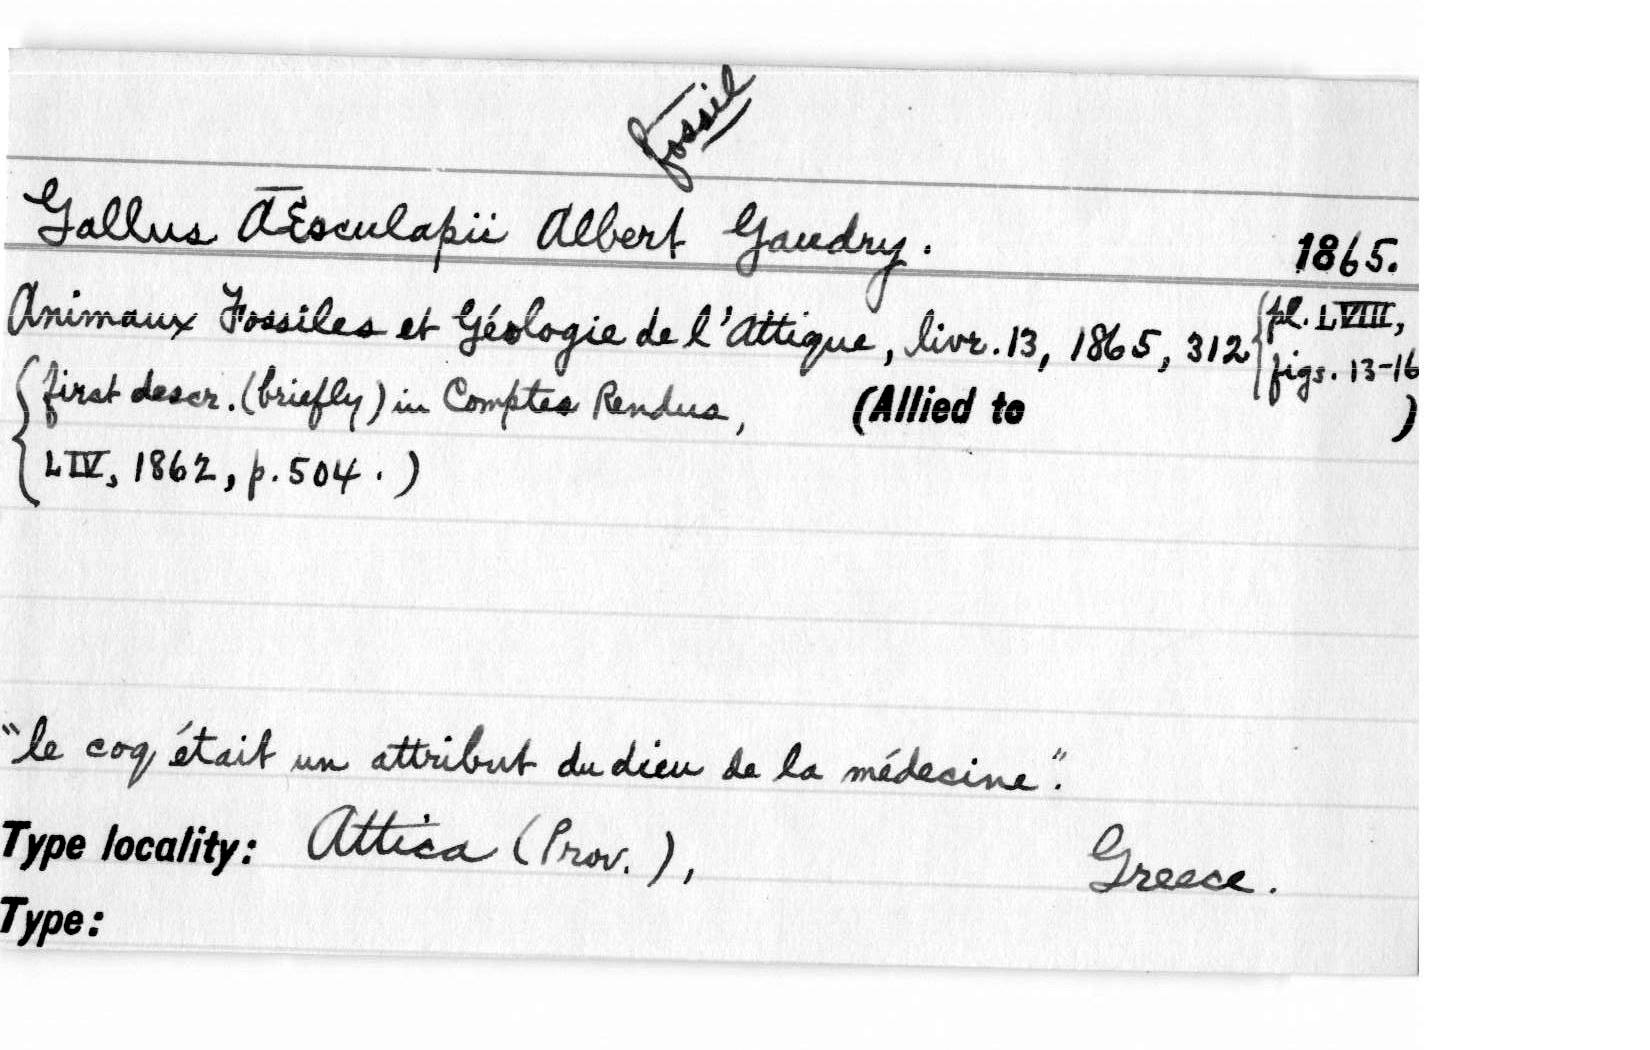 fossil
Gallus Æsculapii Albert Gaudry. 1865.
Animaux Fossiles et Géologie de l'Attique, livr. 13, 1865, 312 { pl. LVIII,
figs. 13-16
{ first descr. (briefly) in Comptes Rendus, (Allied to )
LIV, 1862, p. 504. )
"le coq était un attribut du dieu de la médecine".
Type locality: Attica (Prov.), Greece.
Type: